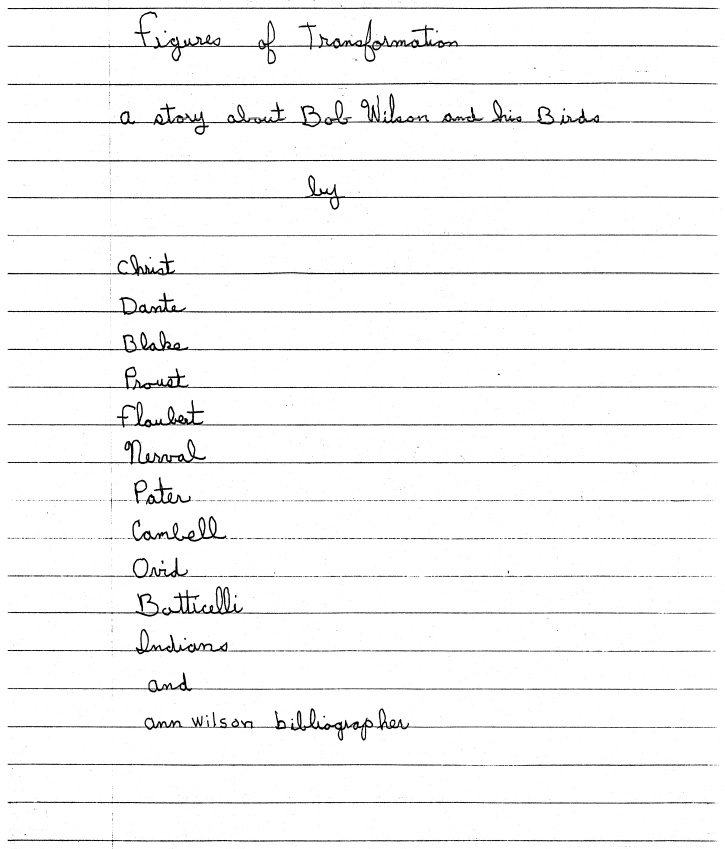 Figures of Transformation
a story about Bob Wilson and his Birds
by
Christ
Dante
Blake
Proust
Flaubert
Nerval
Pater
Cambell
Ovid
Botticelli
Indians
and
ann wilson bibliographer